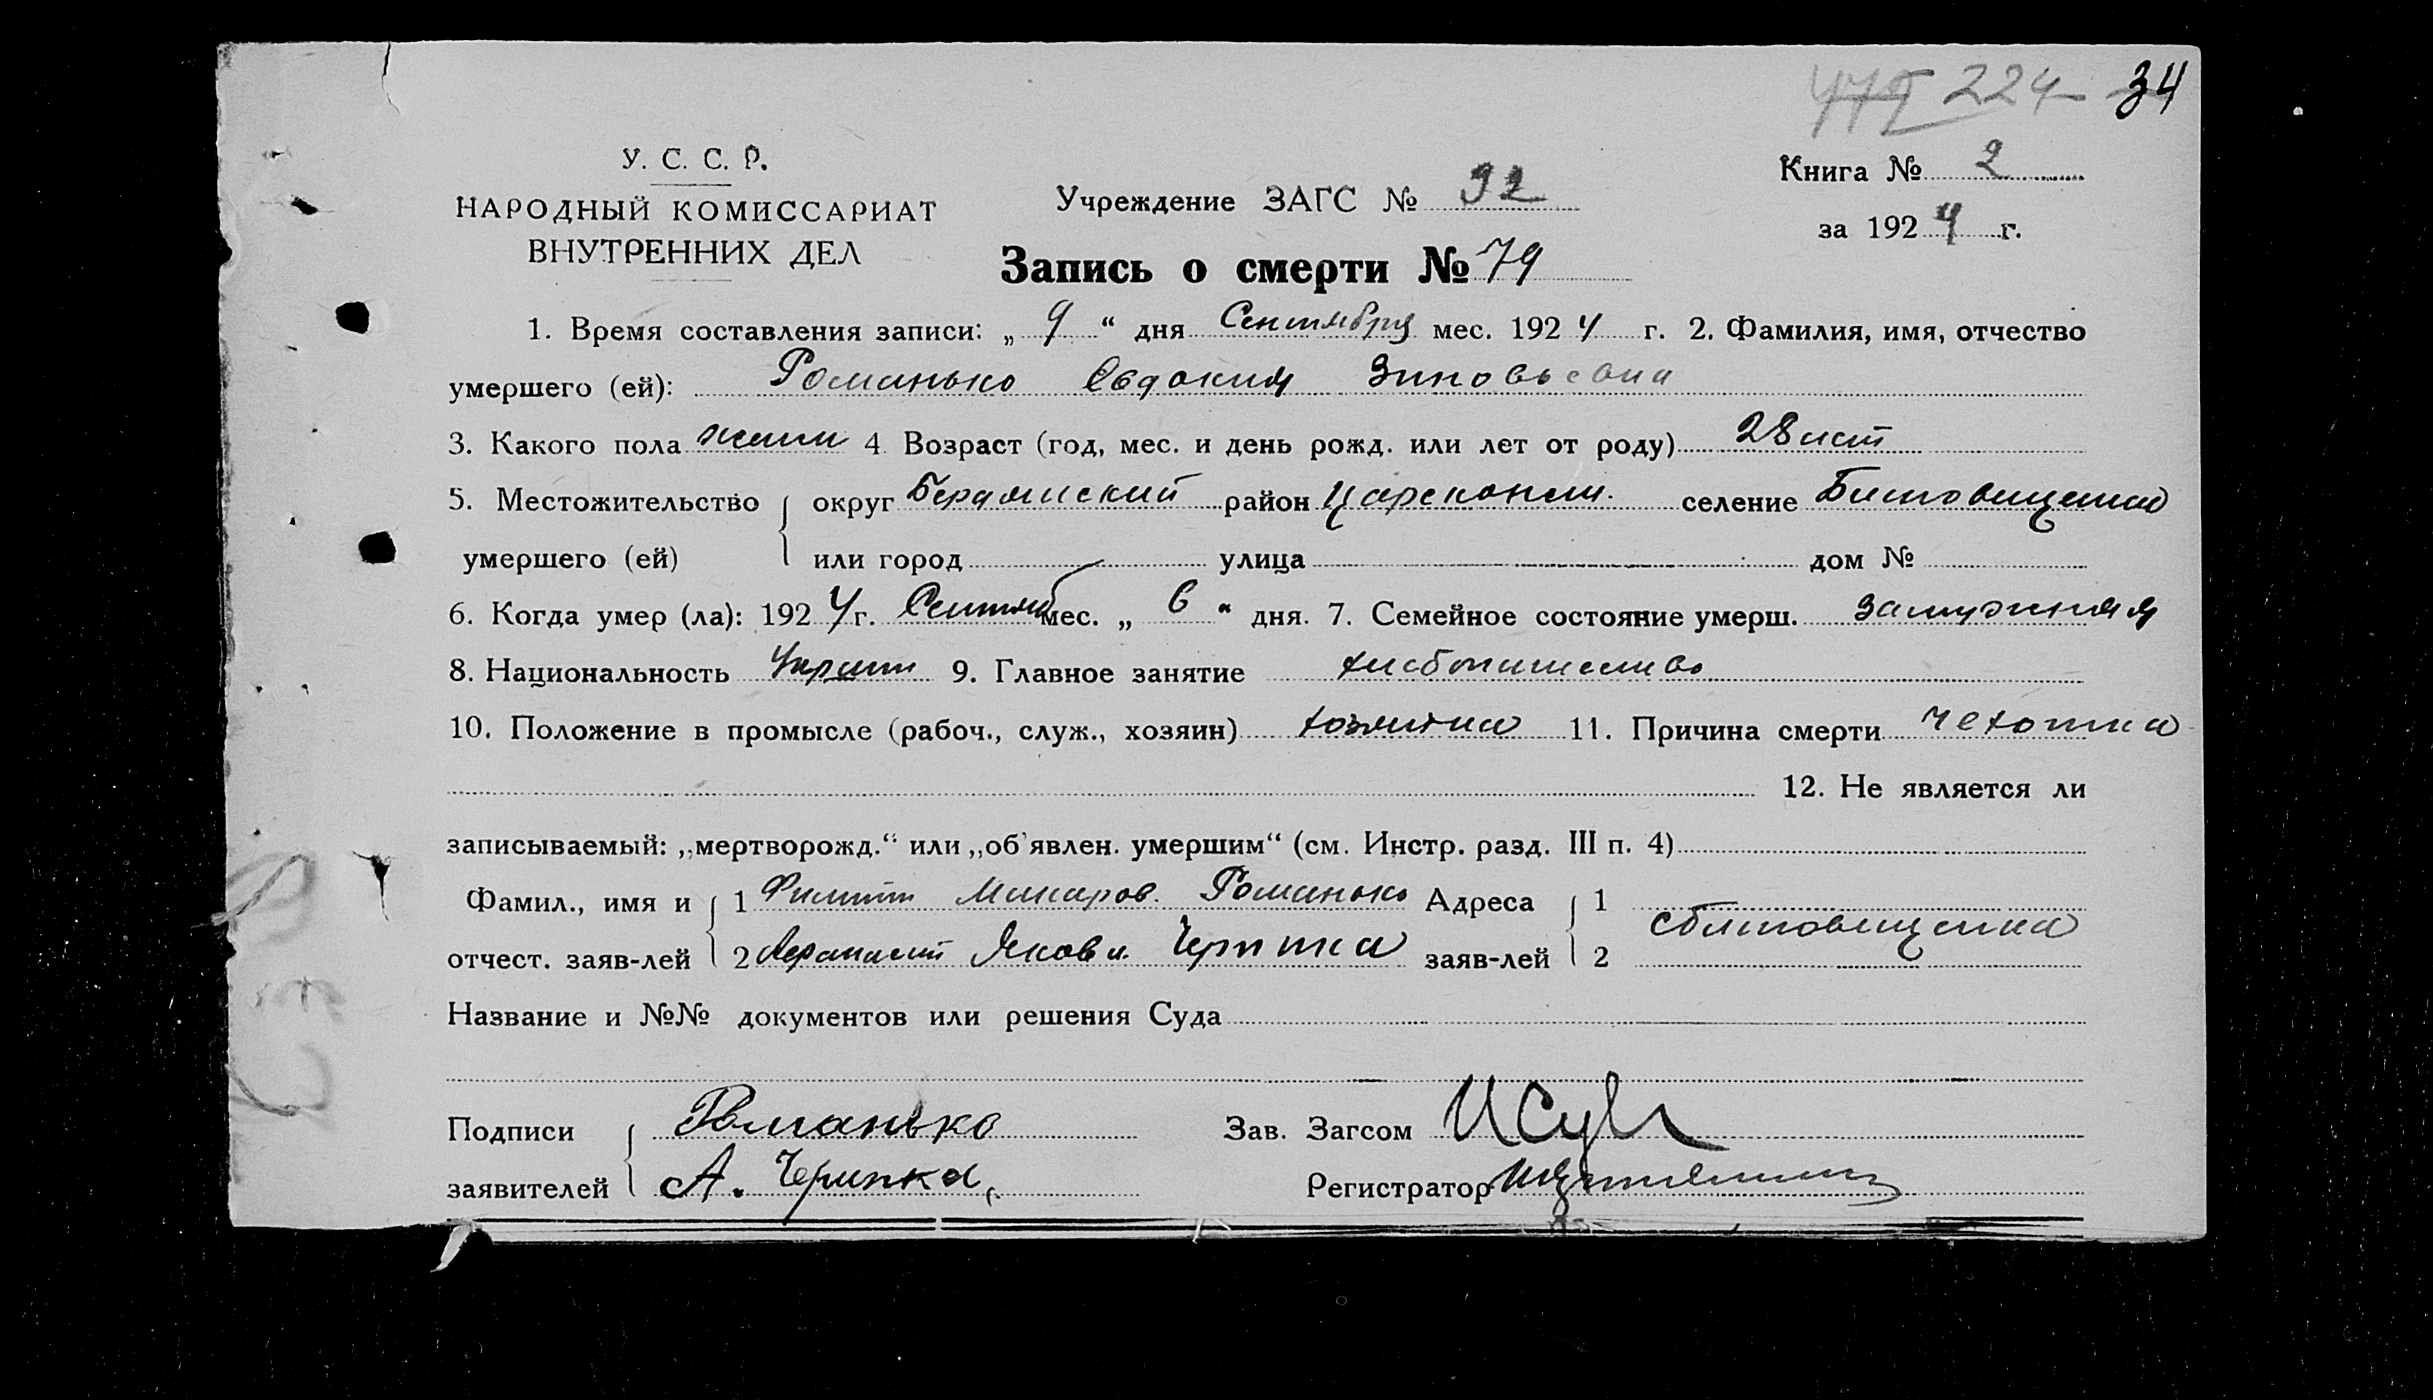 224 34
У. С. С. Р.
НАРОДНЫЙ КОМИССАРИАТ
ВНУТРЕННИХ ДЕЛ
Учреждение ЗАГС № 32
Книга № 2
за 1924 г.
Запись о смерти № 79
1. Время составления записи: „ 9 “ дня Сентября мес. 1924 г. 2. Фамилия, имя, отчество
умершего (ей): Романько Евдокия Зиновьевна
3. Какого пола женск 4. Возраст (год, мес. и день рожд. или лет от роду) 28 лет
5. Местожительство округ Бердянский район Цареконст. селение Благовещенка
умершего (ей) или город улица дом №
6. Когда умер (ла): 1924 г. Сентяб мес. „ 6 “ дня. 7. Семейное состояние умерш. замужняя
8. Национальность Украин 9. Главное занятие хлебопашество
10. Положение в промысле (рабоч., служ., хозяин) хозяйка 11. Причина смерти чехотка
12. Не является ли
записываемый: „мертворожд.“ или „об'явлен. умершим“ (см. Инстр. разд. III п. 4)
Фамил., имя и 1 Филипп Макаров. Романько Адреса 1
с Благовещенка
отчест. заяв-лей 2 Афанасий Яковл. Черипка заяв-лей 2
Название и №№ документов или решения Суда
Подписи Романько Зав. Загсом
заявителей А. Черипка Регистратор